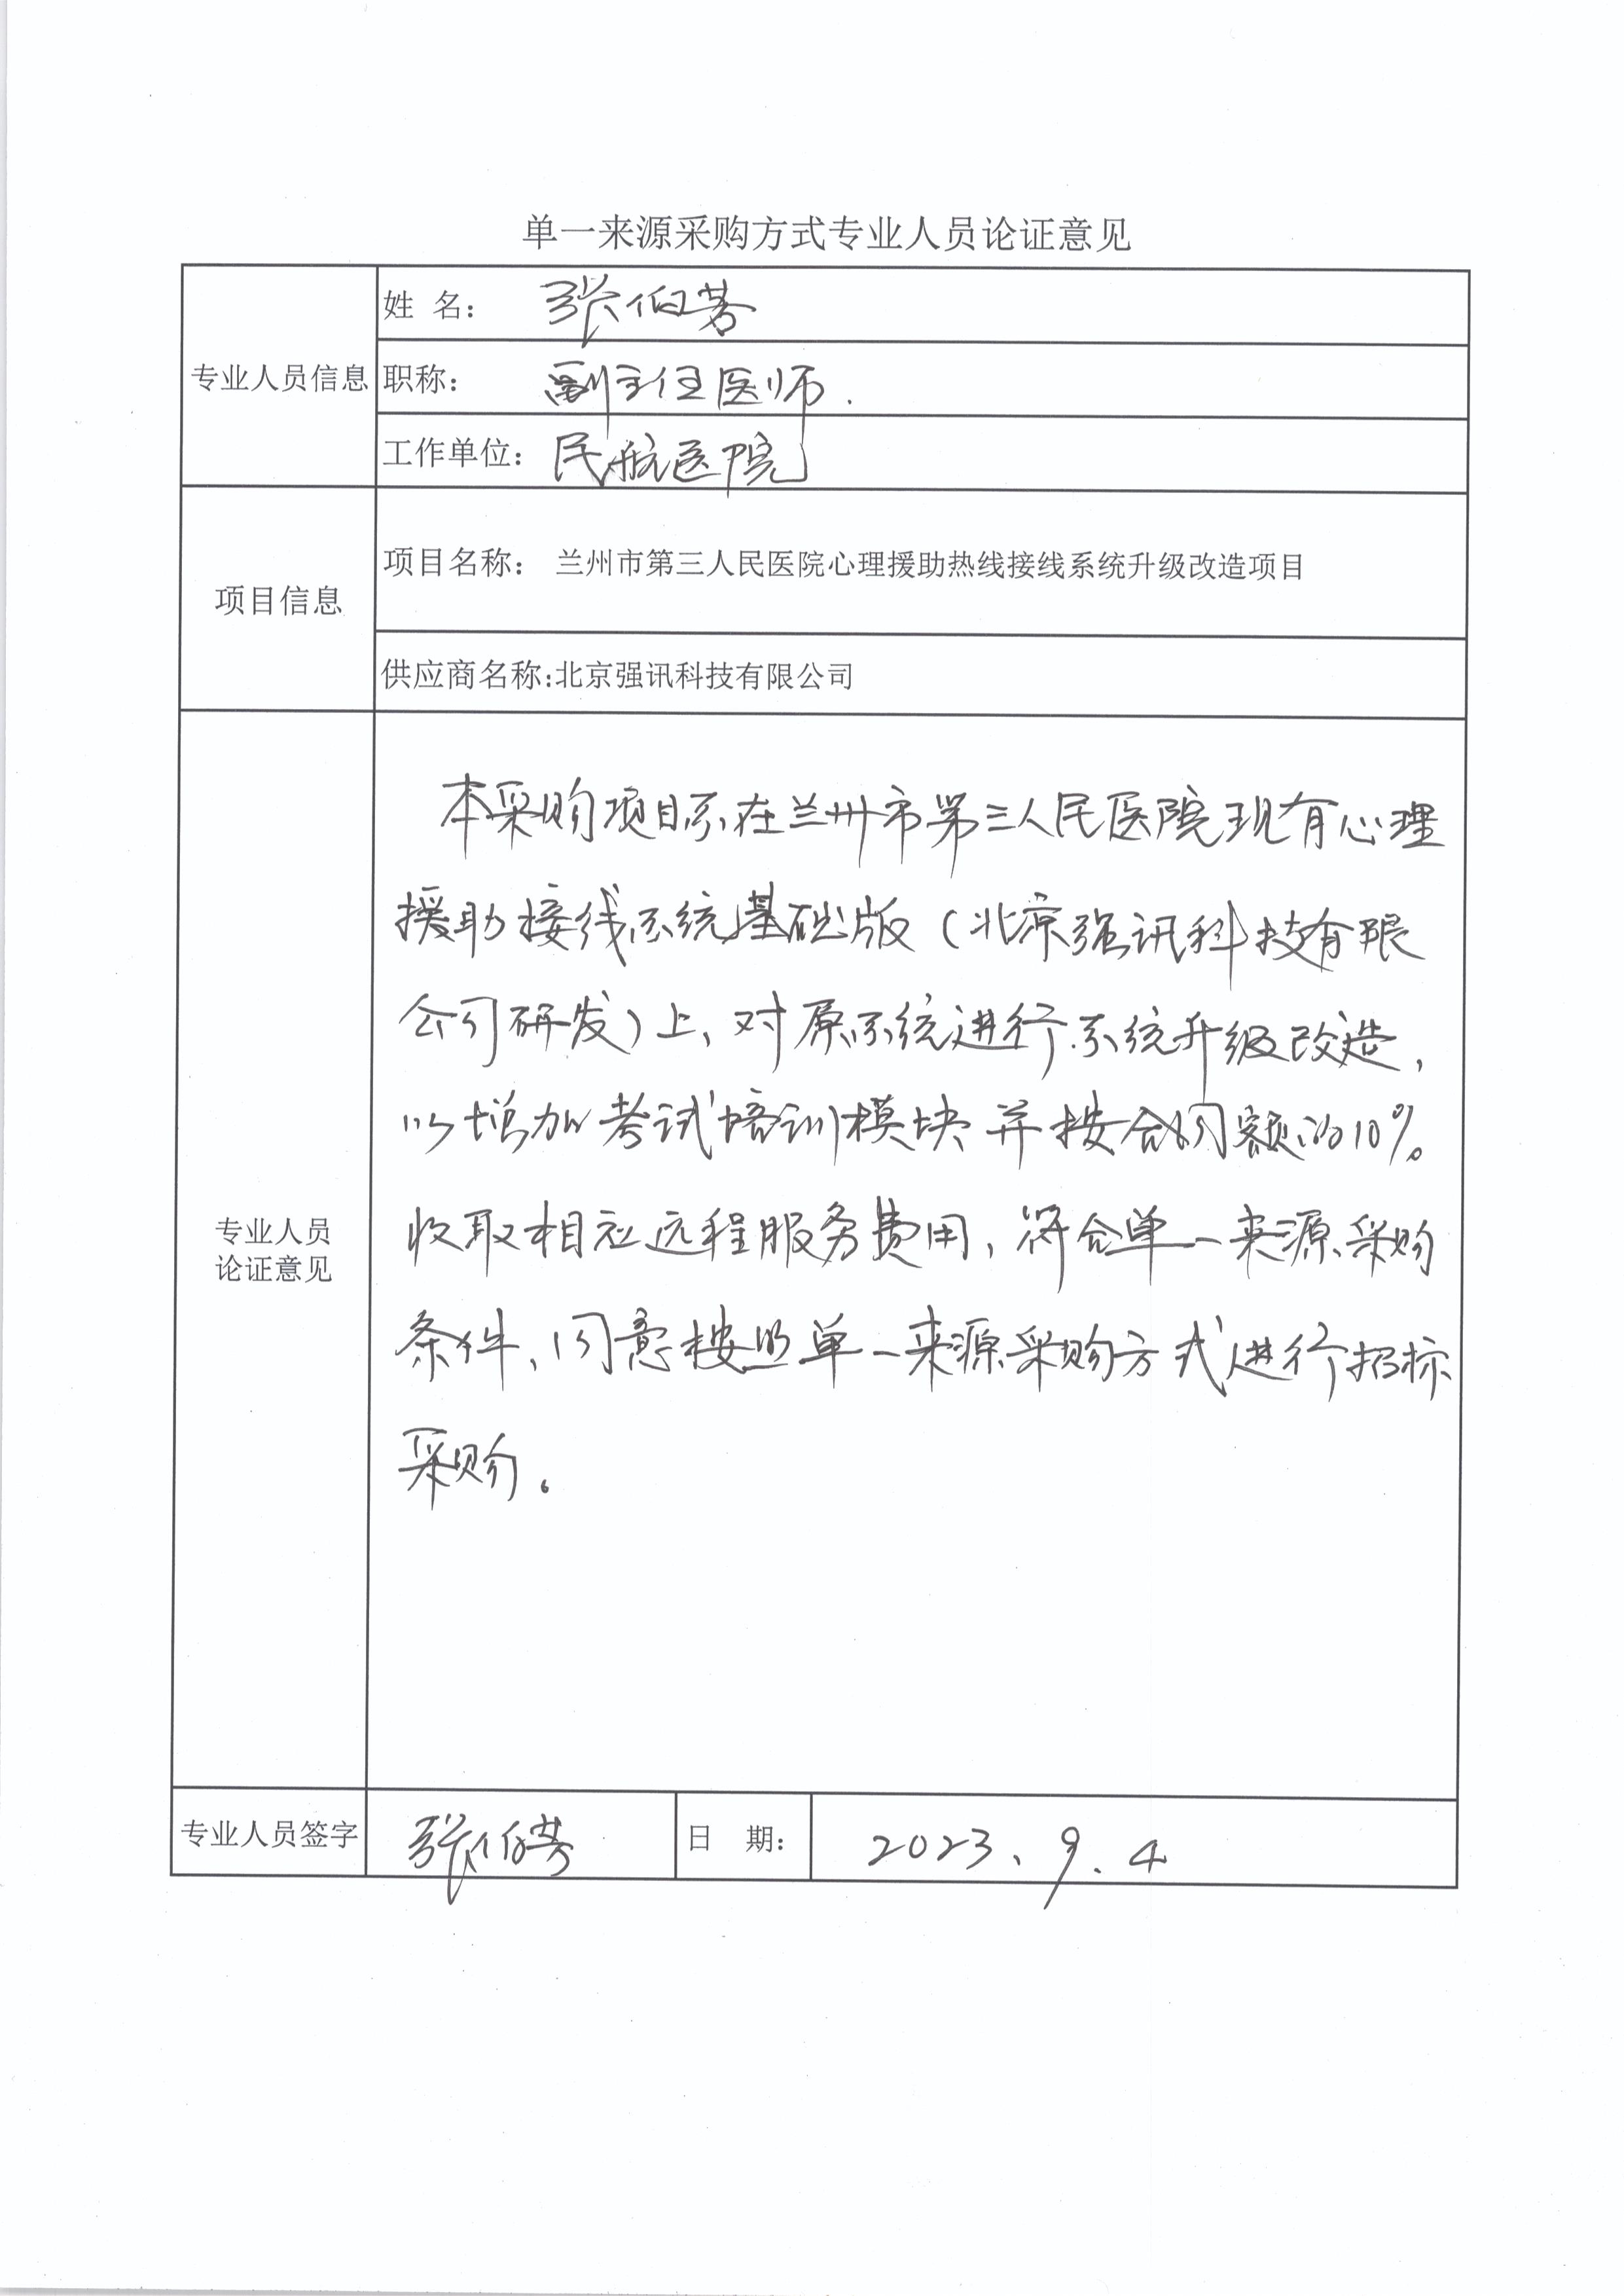 单一来源采购方式专业人员论证意见
专业人员信息
姓 名： 张伯芳
职称： 副主任医师.
工作单位： 民航医院
项目信息
项目名称： 兰州市第三人民医院心理援助热线接线系统升级改造项目
供应商名称:北京强讯科技有限公司
专业人员
论证意见
本采购项目系在兰州市第三人民医院现有心理
援助接线系统基础版（北京强讯科技有限
公司研发）上、对原系统进行系统升级改造，
以增加考试培训模块并按合同额的10%。
收取相应远程服务费用，符合单一来源采购
条件、同意按照单一来源采购方式进行招标
采购。
专业人员签字 张伯芳 日 期： 2023、9.4